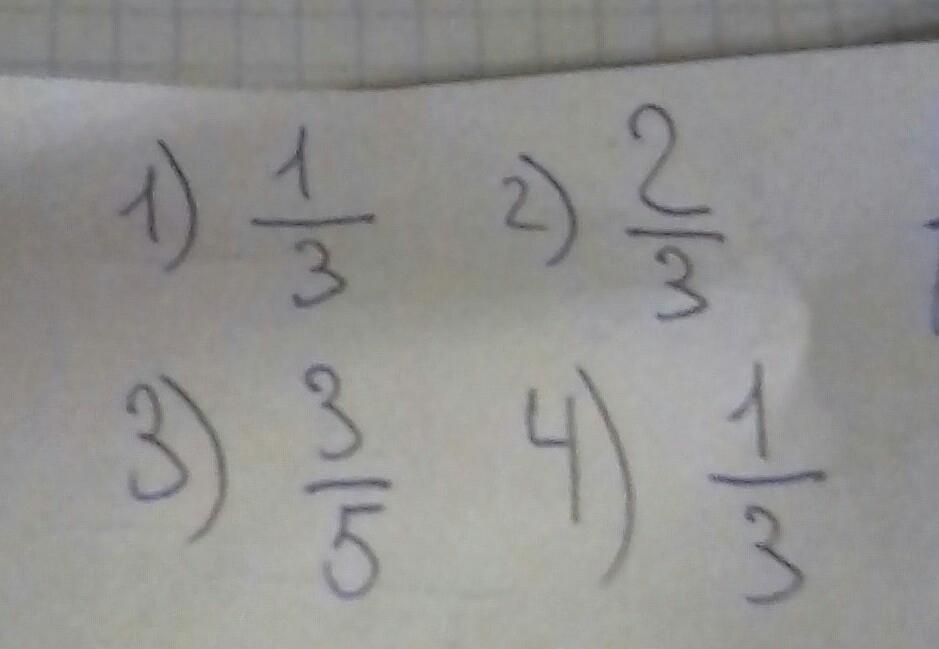 1) 1/3 2) 2/3
3) 3/5 4) 1/3